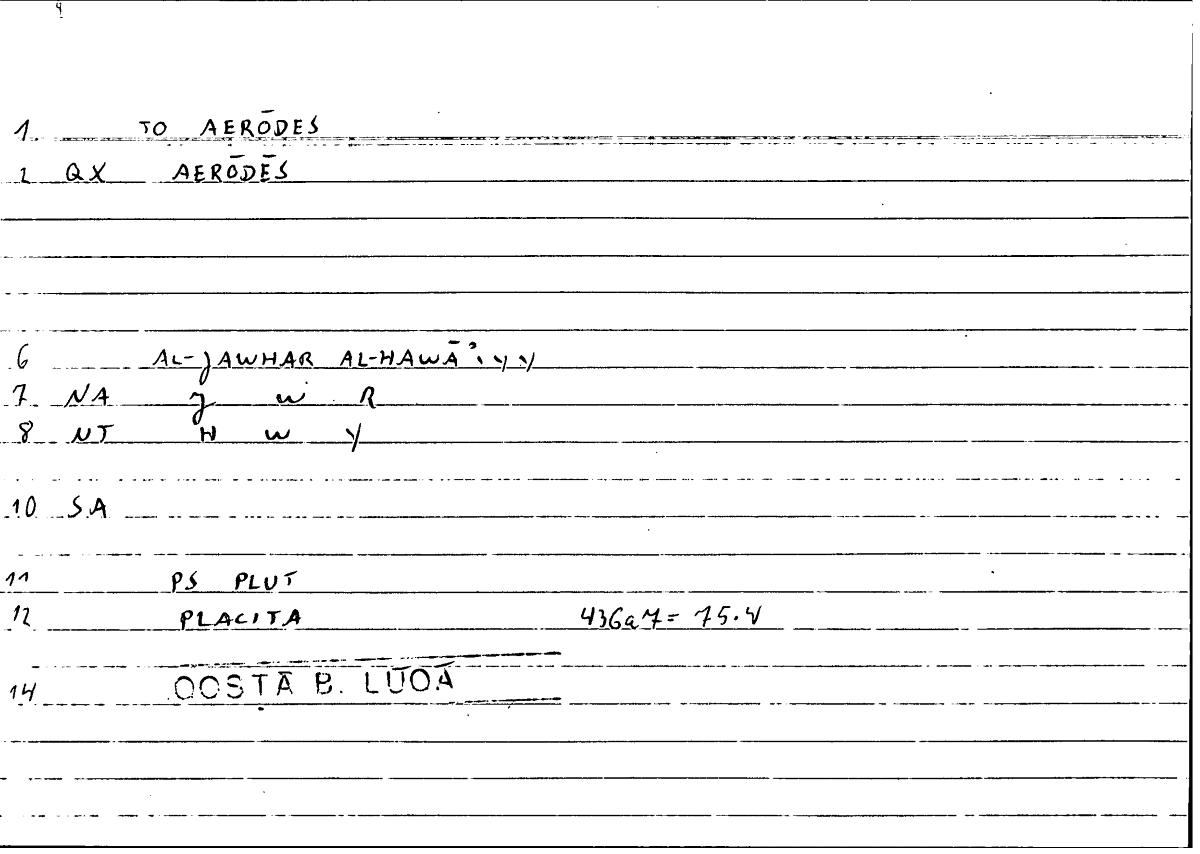 1. TO AERŌDES
2 QX AERŌDĒS
6 AL-JAWHAR AL-HAWĀʾiyy
7 NA J W R
8 NT H W Y
10 SA
11 PS PLUT
12 PLACITA 436a7 = 75.4
14 QOSTĀ B. LŪQĀ